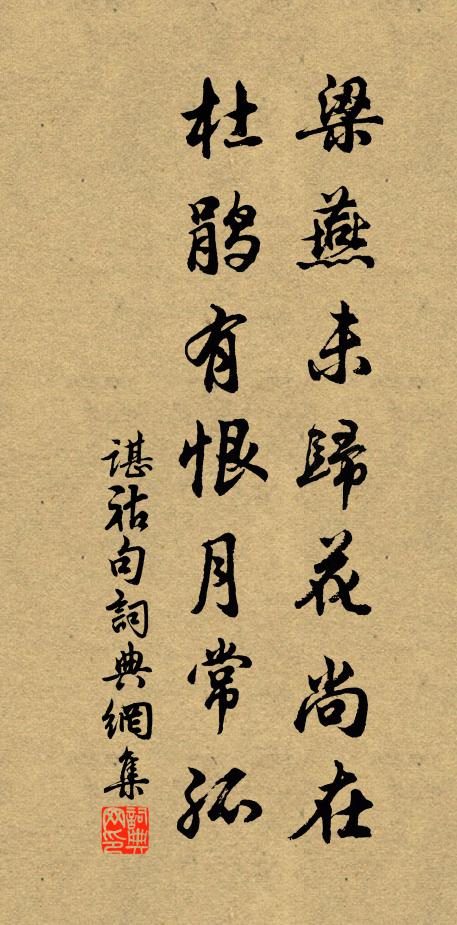 梁燕未歸花尚在
杜鵑有恨月常孤
諶祜句詞典網集
詞典網印